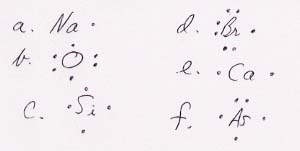 a. Na
b. O
c. Si
d. Br
e. Ca
f. As